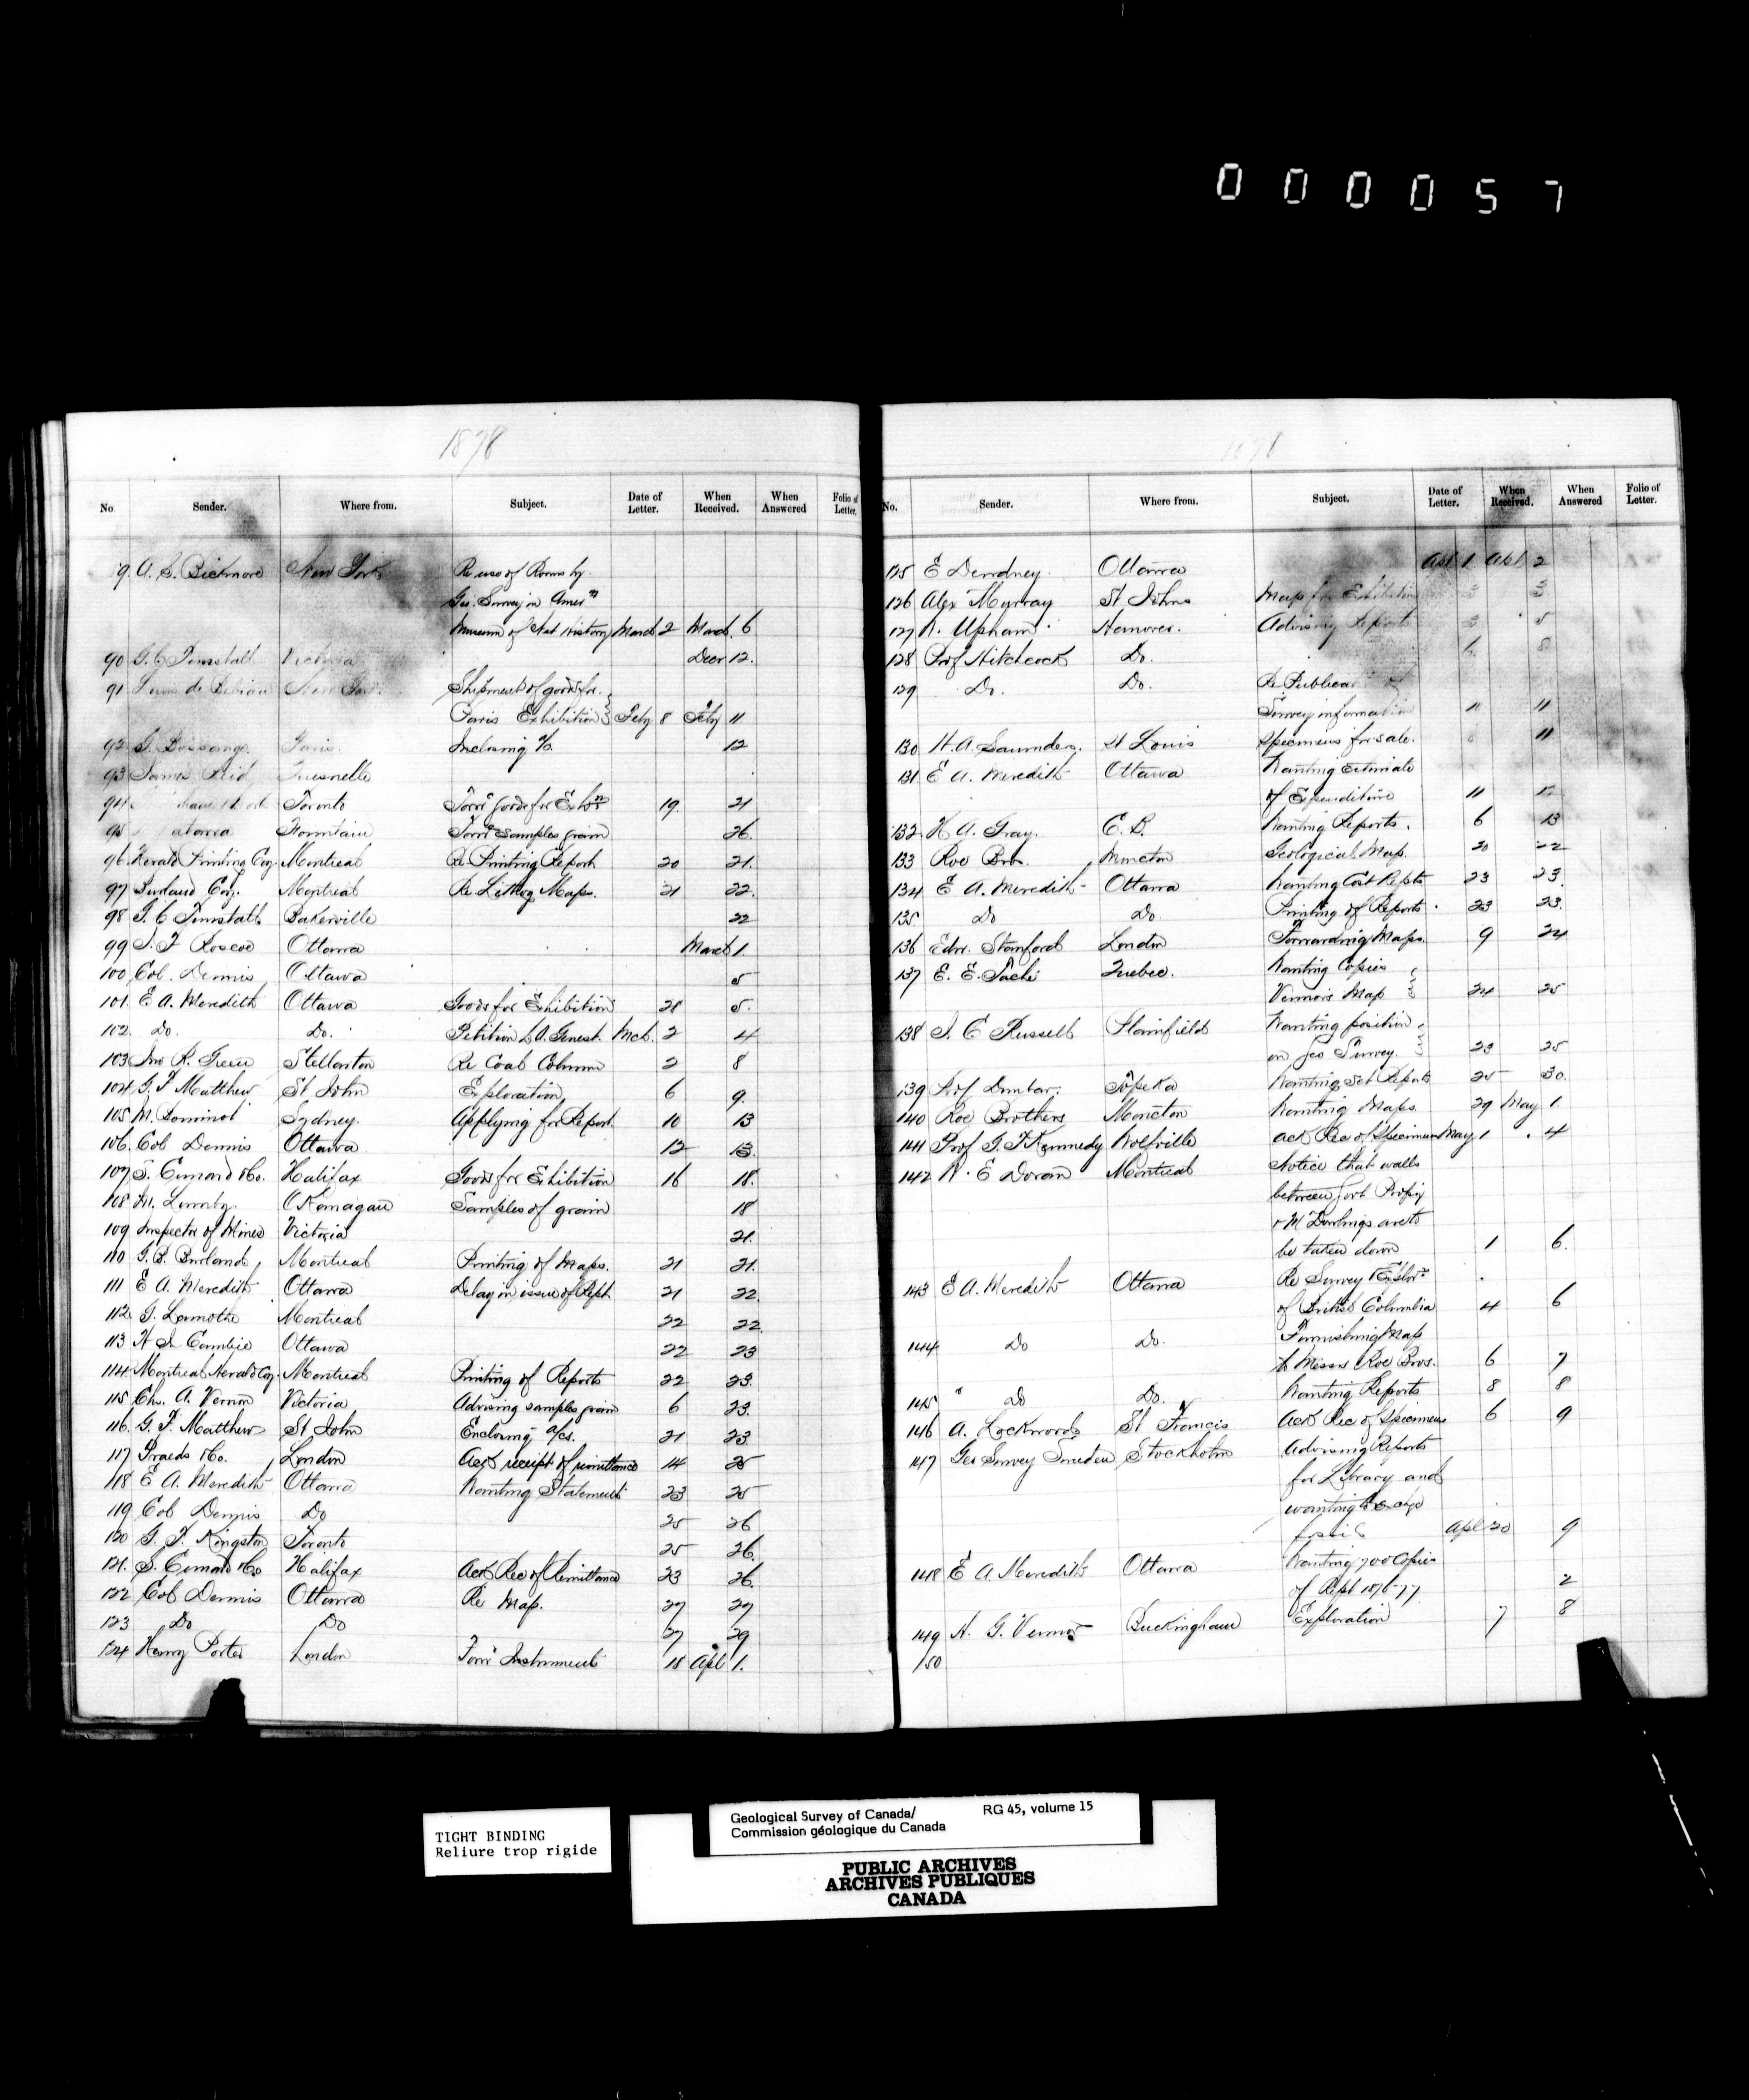 000057
1878
No Sender. Where from. Subject. Date of Letter. When Received. When Answered Folio of Letter.
9 A. S. Bickmore New York Re use of Rooms by
Geo. Survey in Amer n
Museum of Nat History March 2 March 6
90 G. C. Tunstall Victoria Decr 12.
91 Louis de Bebian New York Shipment of goods for
Paris Exhibition Feby 8 Feby 11
92 G. Bossange Paris. Inclosing 12
93 James Reid Quesnelle
94 Toronto Forwg goods for Exhbn 19. 21
95 Fountain Forwg Samples grain 26.
96. Herald Printing Coy. Montreal Re Printing Report 20 21.
97 Burland Coy. Montreal Re Lithog Maps. 21 22.
98 G. C. Tunstall Bakerville 22
99 Roscoe Ottawa March 1.
100 Col. Dennis Ottawa 5
101. E A. Meredith Ottawa Goods for Exhibition 28 5.
102. Do. Do. Petition L. A. Genest. Mch. 2 4
103 Jno R. Stellarton Re Coal Column 2 8
104 G. F Matthew St. John Exploration 6 9.
105 M. Sydney. Applying for Report. 10 13
106. Col Dennis Ottawa 12 13.
107 S. Cunard & Co. Halifax Goods for Exhibition 16 18.
108 M. Lumby. OKanagan Samples of grain 18
109 Inspector of Mines Victoria 21.
110 G. B. Burland, Montreal Printing of Maps. 21 21.
111 E A. Meredith Ottawa Delay in issue of Rept. 21 22.
112. G. Lamothe Montreal 22 22.
113 H Cambie Ottawa 22 23
114 Montreal Herald Coy. Montreal Printing of Reports 22 23.
115 Chs. A. Vernon Victoria Advising samples grain 6 23.
116. G. F. Matthew St John Enclosing a/cs. 21 23
117 Praeds & Co. London Ack receipt of remittance 14 25
118 E A. Meredith Ottawa Wanting Statement 23 25
119 Col Dennis Do 25 26
120 G. T. Kingston Toronto 25 26.
121. S. Cunard & Co Halifax Ack Rec of Remittance 23 26.
122 Col Dennis Ottawa Re Map. 27 27
123 Do Do 27 29
124 Henry Porter London Forwg Instruments 18 Apl 1.
1878
No. Sender. Where from. Subject. Date of Letter. When Received. When Answered Folio of Letter.
125 E Dewdney. Ottawa Apl 1 Apl 2
126 Alex Murray St. Johns Map for Exhibition 3 3.
127 W. Upham Hanover. Advising Reports 3 5
128 Prof Hitchcock Do. 6 8
129 Do. Do. Re Publication of
Survey information 11
130 H. A. Saunders. St Louis Specimens for sale. 11
131 E A. Meredith Ottawa Wanting Estimate
of Expenditure 11 12
132. H A. Gray. C. B. Wanting Reports. 6 13
133 Roe Bros. Moncton Geological Map. 20 22
134 E A. Meredith Ottawa Wanting Cost Repts 23 23.
135. Do Do. Printing of Reports. 23 23.
136 Edw. Stanford London Forwarding Maps. 9 24
137 E. E. Taché Quebec. Wanting Copies
Vennors Map 24 25
138 I. C Russell Plainfield Wanting position
on Geo Survey. 23 25
139 Prof Dunbar. Topeka Wanting Set Reports 25 30.
140 Roe Brothers Moncton Wanting Maps 29 May 1.
141 Prof G. T Kennedy Wolfville Ack Rec of Specimens May 1 4
142 W. E Doran Montreal Notice that walls
between Govt Propy
& Mr Dorlings are to
be taken down 1 6.
143 E A. Meredith Ottawa Re Survey & Explorn
of British Columbia 4 6
144 Do Do. Furnishing Map
to Messrs Roe Bros. 6 7
145 Do Do. Wanting Reports 8 8
146 A. Lockwood St Francis Ack Rec of Specimens 6 9
147 Geo Survey Sweden Stockholm Advising Reports
for Library and
wanting to exchge
fossils Apl 20 9
148 E A. Meredith Ottawa Wanting 700 Copies
of Rept 1876-77 2
149 H. G. Vennor Buckingham Exploration 7 8
150
TIGHT BINDING
Reliure trop rigide
Geological Survey of Canada/ RG 45, volume 15
Commission géologique du Canada
PUBLIC ARCHIVES
ARCHIVES PUBLIQUES
CANADA